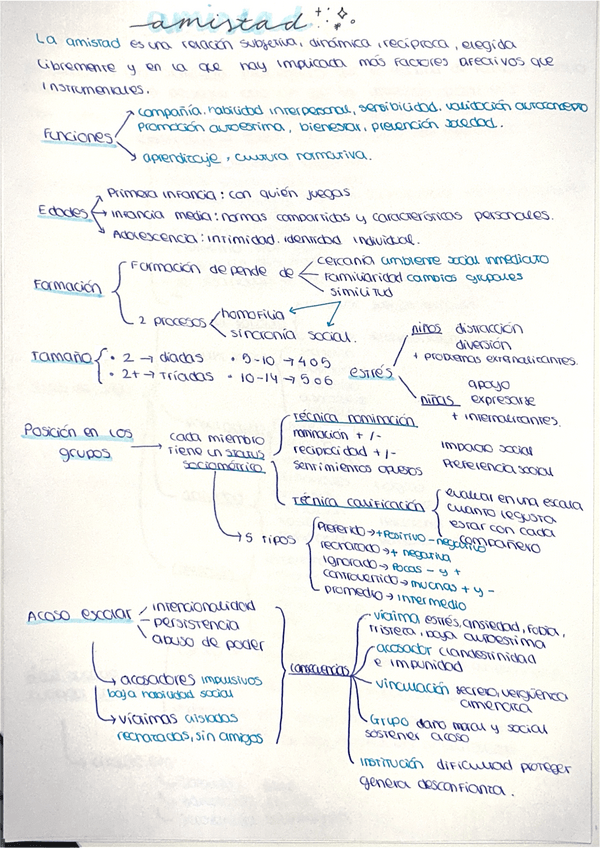 amistad
La amistad es una relación subjetiva, dinámica, recíproca, elegida
libremente y en la que hay implicada más factores afectivos que
instrumentales.
Funciones
compañía, habilidad interpersonal, sensibilidad, validación autoconcepto
Promoción autoestima, bienestar, prevención soledad.
aprendizaje, cultura normativa.
Edades
Primera infancia: con quién juegas
Infancia media: normas compartidas y características personales.
Adolescencia: intimidad, identidad individual.
Formación
Formación depende de
cercanía ambiente social inmediato
Familiaridad cambios grupales
similitud
2 procesos
homofilia
sincronía social.
Tamaño
• 2 → díadas • 9-10 → 4 o 5
• 2+ → Tríadas • 10-14 → 5 o 6
estrés
niños distracción
diversión
+ problemas externalizantes.
apoyo
niñas expresarse
+ internalizantes.
Posición en los
grupos
cada miembro
tiene un status
sociométrico
Técnica nominación
nominación + / -
reciprocidad + / -
sentimientos opuestos
impacto social
Preferencia social
Técnica calificación
evaluar en una escala
cuanto le gusta
estar con cada
compañero
5 tipos
Preferido → + positivo - negativo
rechazado → + negativa
Ignorado → Pocas - y +
controvertido → muchas + y -
promedio → intermedio
Acoso escolar
intencionalidad
persistencia
abuso de poder
acosadores impulsivos
baja habilidad social
víctimas aisladas
rechazadas, sin amigos
consecuencias
víctima estrés, ansiedad, fobia,
tristeza, baja autoestima
acosador clandestinidad
e impunidad
vinculación secreto, vergüenza
amenaza
Grupo daño moral y social
sostener acoso
institución dificultad proteger
genera desconfianza.